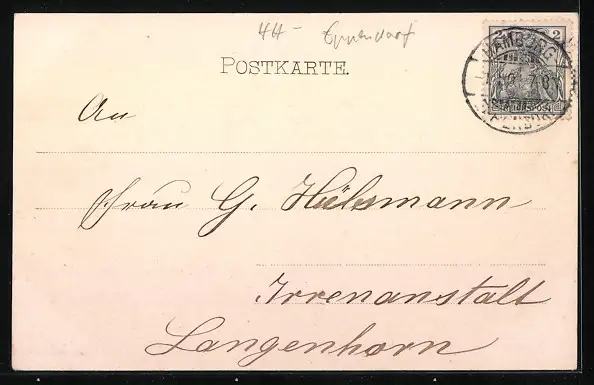 44 - Eppendorf
POSTKARTE.
2 2
HAMBURG
An
Frau G. Hülsmann
Irrenanstalt
Langenhorn